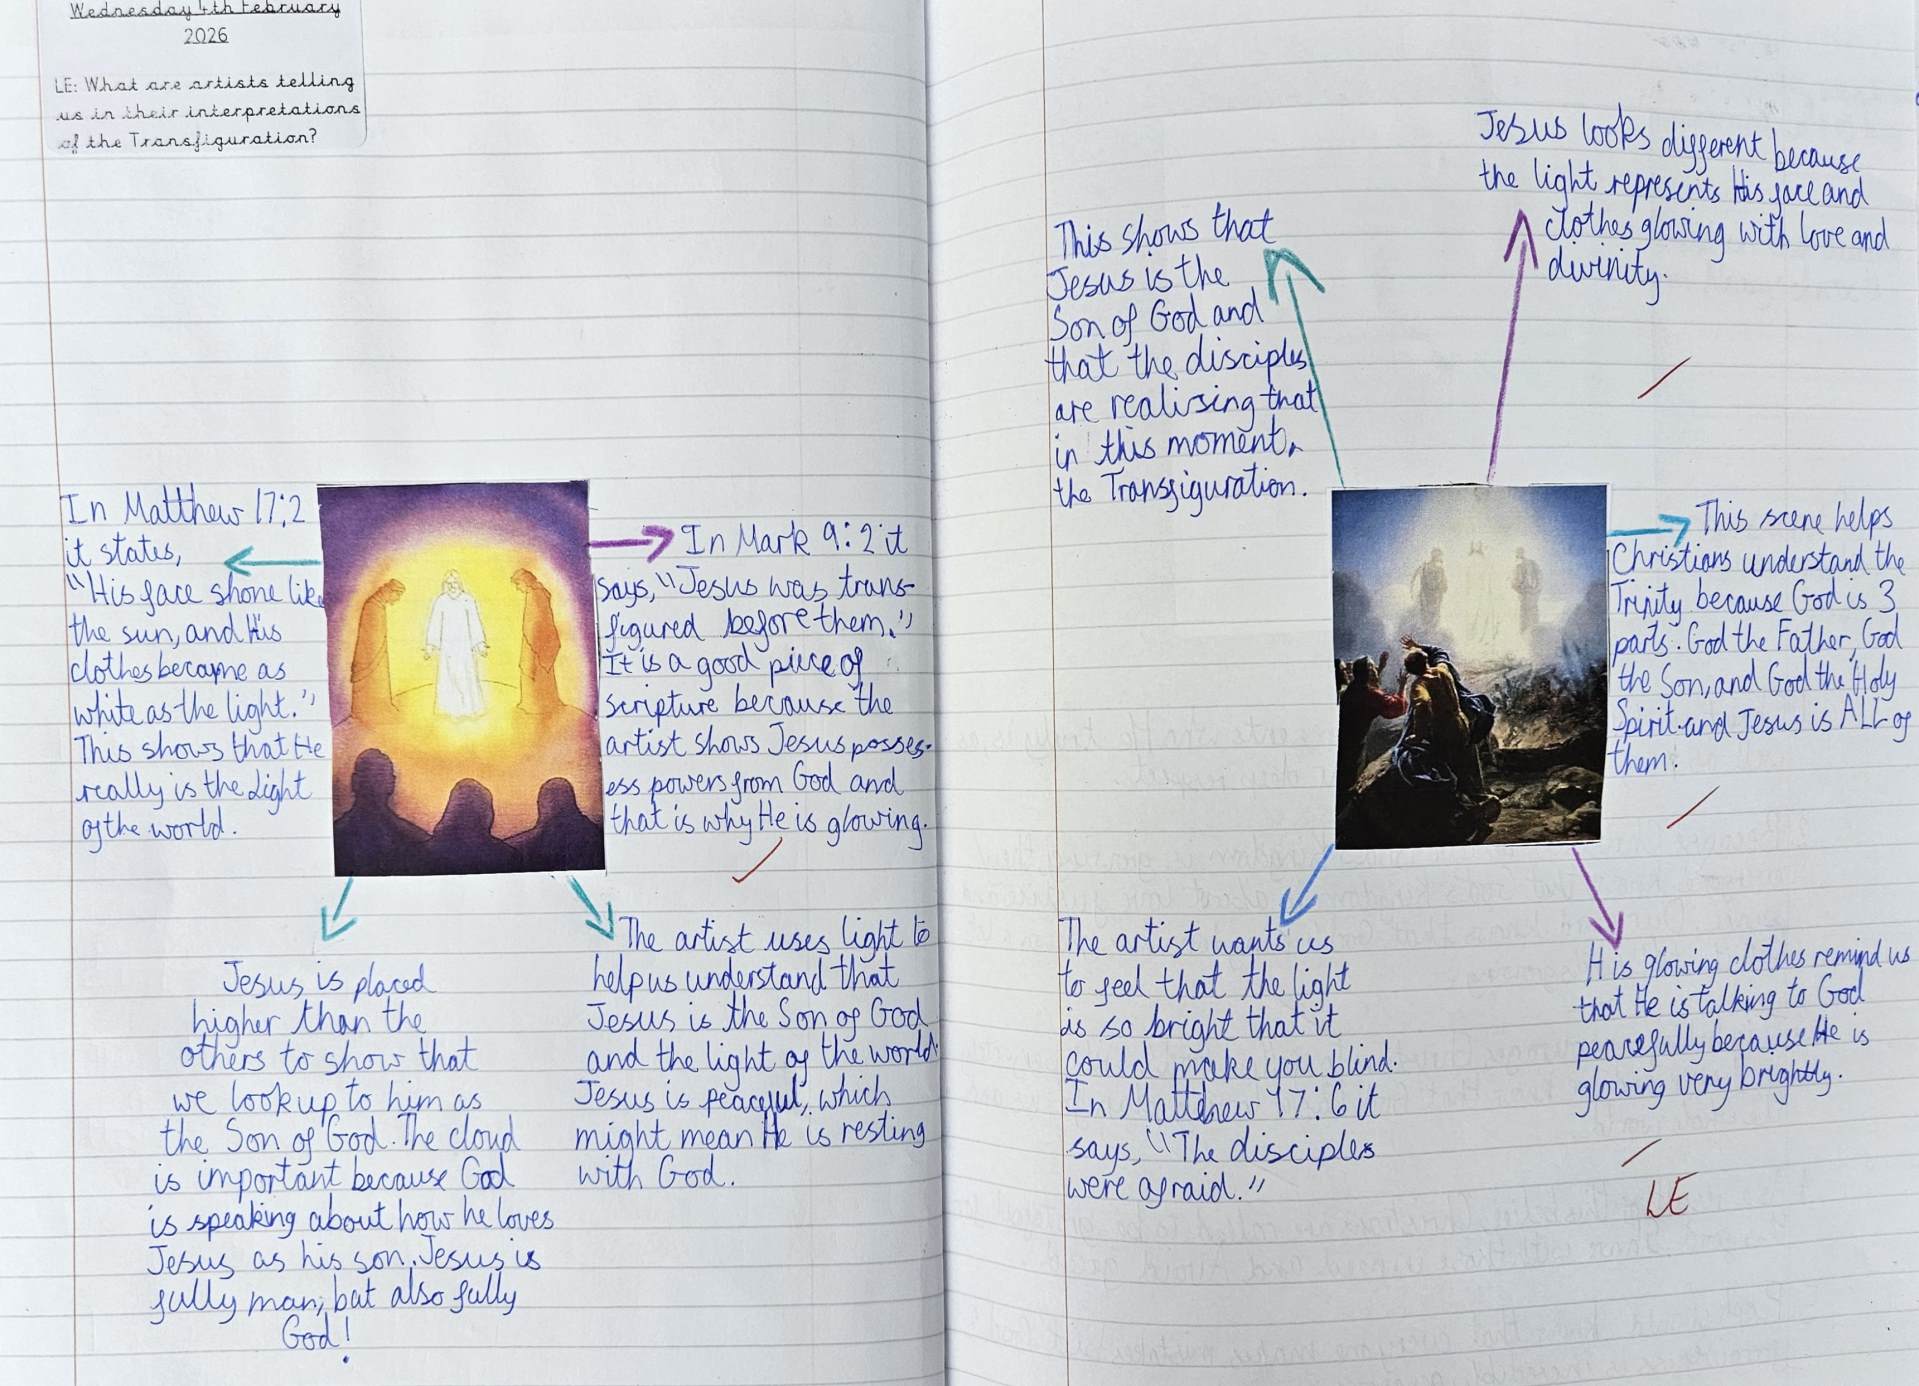 Wednesday 4th February
2026
LE: What are artists telling
us in their interpretations
of the Transfiguration?
In Matthew 17:2
it states,
"His face shone like
the sun, and His
clothes became as
white as the light."
This shows that He
really is the Light
of the world.
In Mark 9:2 it
says, "Jesus was trans-
figured before them."
It is a good piece of
scripture because the
artist shows Jesus posses-
ess powers from God and
that is why He is glowing.
Jesus is placed
higher than the
others to show that
we look up to him as
the Son of God. The cloud
is important because God
is speaking about how he loves
Jesus as his son. Jesus is
fully man, but also fully
God!
The artist uses light to
help us understand that
Jesus is the Son of God
and the light of the world.
Jesus is peaceful, which
might mean He is resting
with God.
This shows that
Jesus is the
Son of God and
that the disciples
are realising that
in this moment,
the Transfiguration.
Jesus looks different because
the light represents His face and
clothes glowing with love and
divinity.
This scene helps
Christians understand the
Trinity because God is 3
parts: God the Father, God
the Son, and God the Holy
Spirit and Jesus is ALL of
them.
The artist wants us
to feel that the light
is so bright that it
could make you blind.
In Matthew 17:6 it
says, "The disciples
were afraid."
His glowing clothes remind us
that He is talking to God
peacefully because He is
glowing very brightly.
LE